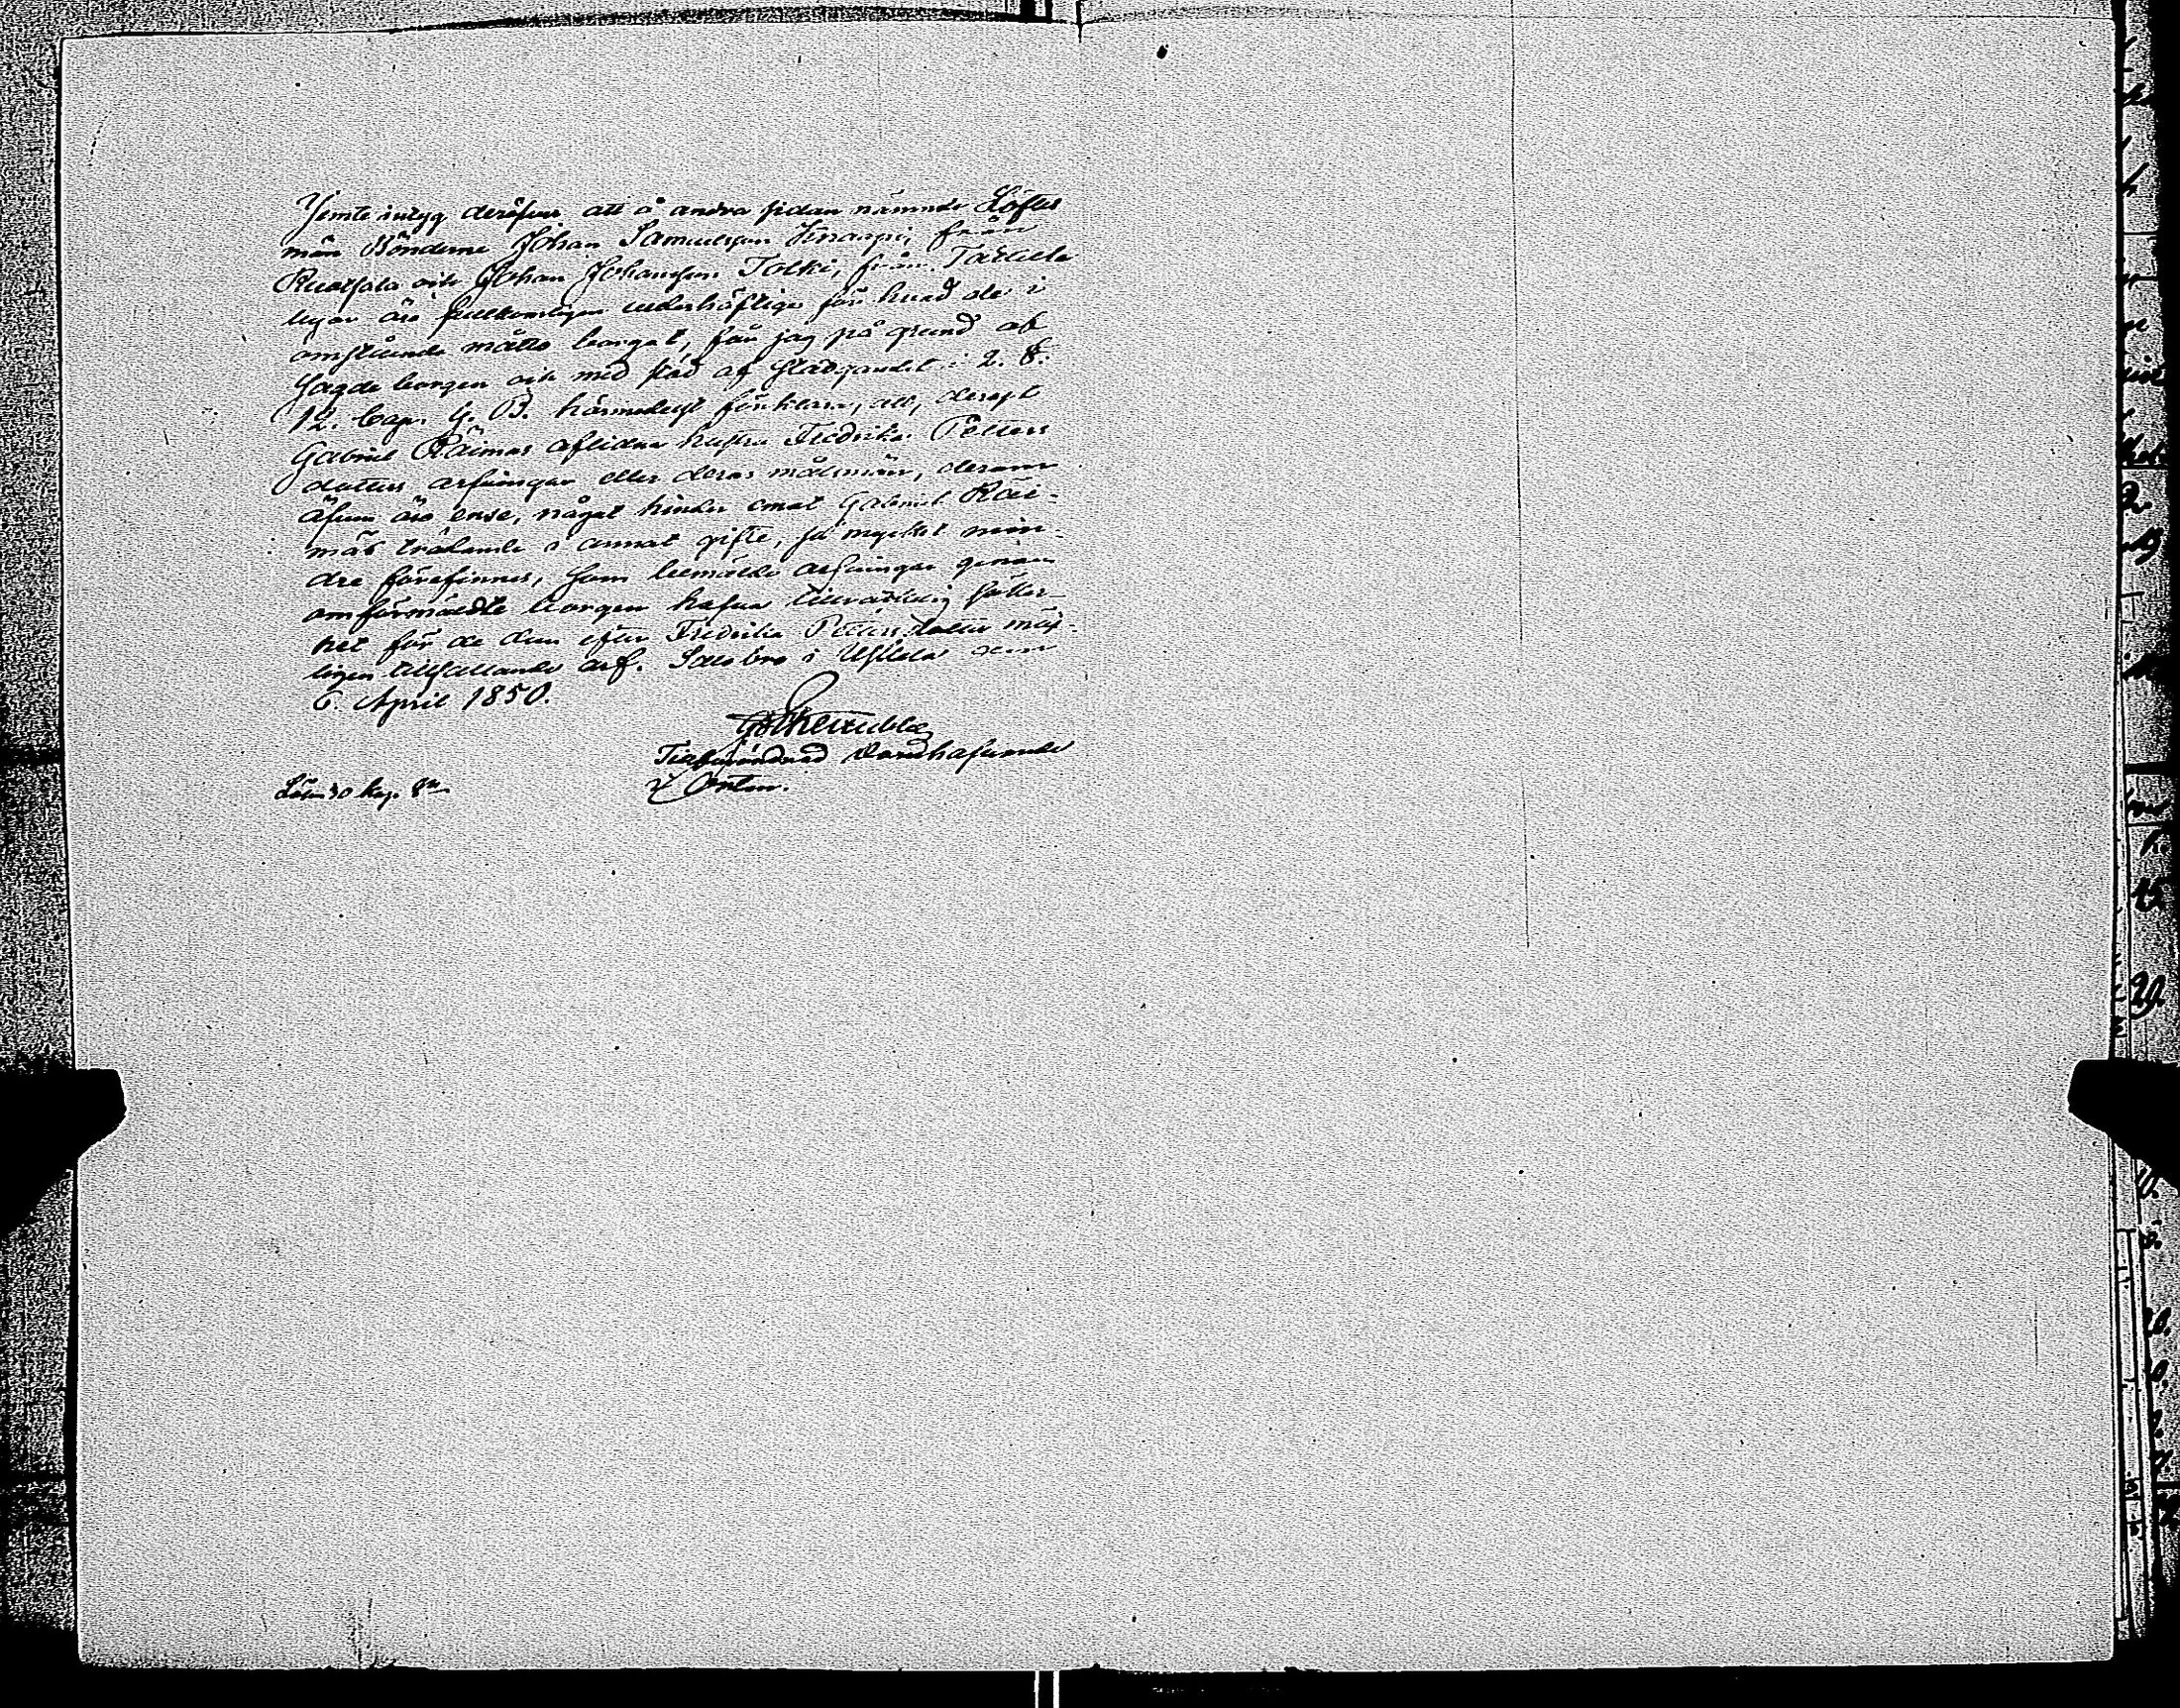 Jemte intyg deröfver att å andra sidan nämnde Löftes
män Bönderne Johan Samuelsson Knaapi, från
Ruotsala och Johan Johansson Tolki, från
byar äro fullkomligen vederhäftige för hvad de i
måtto borgat, får jag på grund af
sagde borgen och med stöd af stadgandet i 2. §.
12. Cap. G. B. härmedelst förklara, att, derest
Gabriel Räimas aflidna hustru Fredrika Petters
dotters arfvingar eller deras målsmän, derom
äfven äro ense, något hinder emot Gabriel Räi-
mäs trädande i annat gifte, så mycket min-
dre förefinnes, som bemälde arfvingar genom
omförmäldte borgen hafva tillräcklig säker-
het för de dem efter Fredrika Pettersdotter möj-
ligen tillfallande arf. i Ulfsbla den
6. April 1850.
Tillförordnad Domhafvande
i Orten.
Lösen 30 kop. Sr